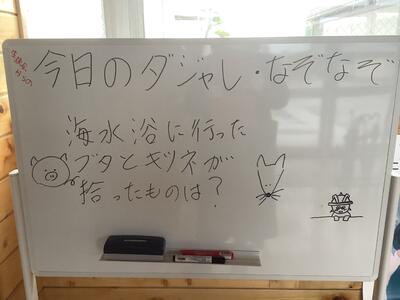 今日のダジャレ・なぞなぞ
海水浴に行った
ブタとキツネが
拾ったものは?